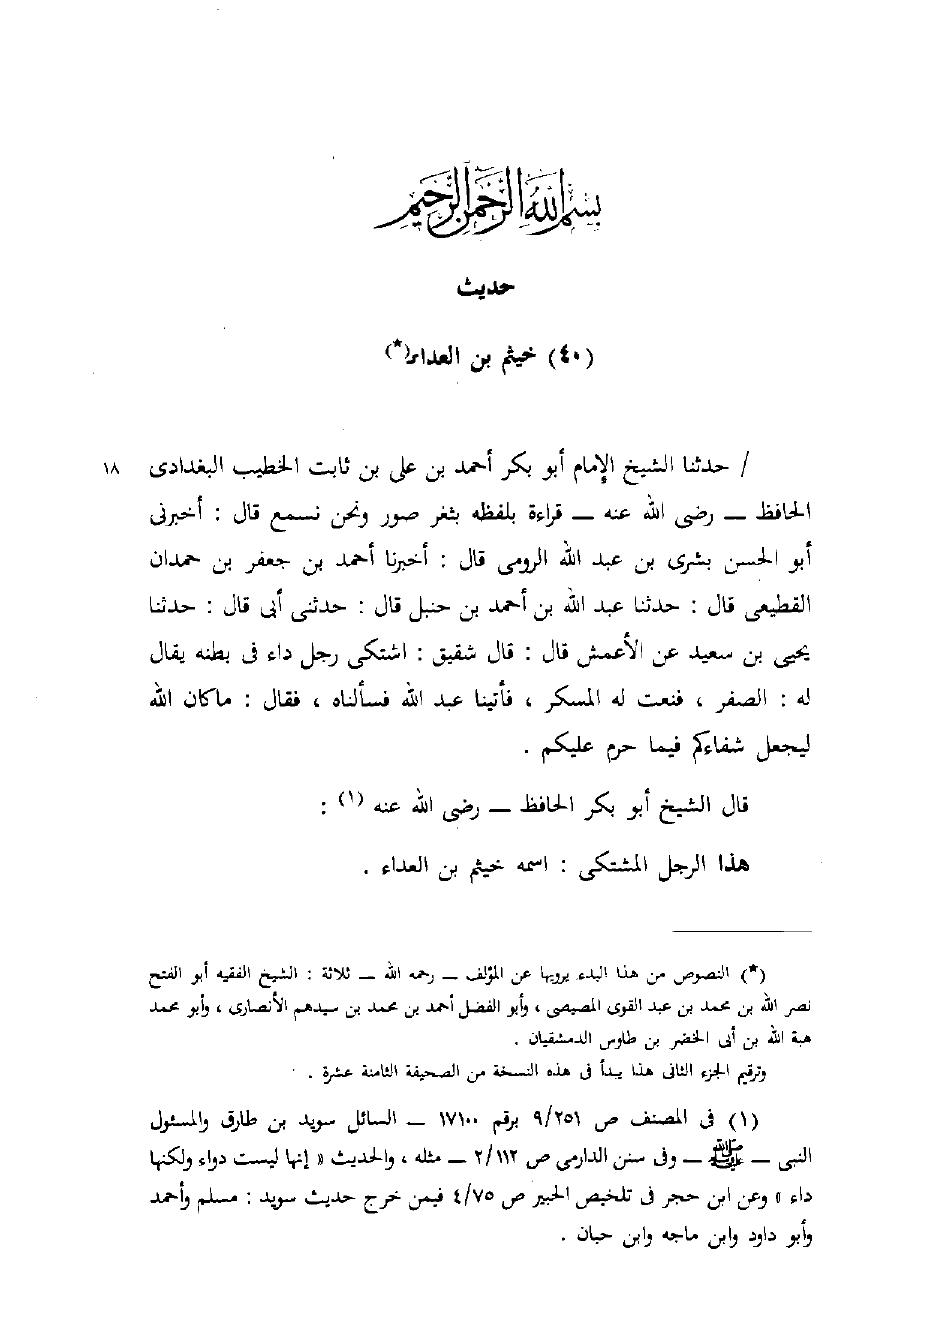 بسم الله الرحمن الرحيم
حديث
(٤٠) خيثم بن العداء(*)
/ حدثنا الشيخ الإمام أبو بكر أحمد بن على بن ثابت الخطيب البغدادى ١٨
الحافظ ــ رضى الله عنه ــ قراءة بلفظه بثغر صور ونحن نسمع قال : أخبرنى
أبو الحسن بشرى بن عبد الله الرومى قال : أخبرنا أحمد بن جعفر بن حمدان
القطيعى قال : حدثنا عبد الله بن أحمد بن حنبل قال : حدثنى أبى قال : حدثنا
يحيى بن سعيد عن الأعمش قال : قال شقيق : اشتكى رجل داء فى بطنه يقال
له : الصفر ، فنعت له المسكر ، فأتينا عبد الله فسألناه ، فقال : ماكان الله
ليجعل شفاءكم فيما حرم عليكم .
قال الشيخ أبو بكر الحافظ ــ رضى الله عنه (١) :
هذا الرجل المشتكى : اسمه خيثم بن العداء .
(*) النصوص من هذا البدء يرويها عن المؤلف ــ رحمه الله ــ ثلاثة : الشيخ الفقيه أبو الفتح
نصر الله بن محمد بن عبد القوى المصيصى ، وأبو الفضل أحمد بن محمد بن سيدهم الأنصارى ، وأبو محمد
هبة الله بن أبى الخضر بن طاوس الدمشقيان .
وترقيم الجزء الثانى هذا يبدأ فى هذه النسخة من الصحيفة الثامنة عشرة .
(١) فى المصنف ص ٩/٢٥١ برقم ١٧١٠٠ ــ السائل سويد بن طارق والمسئول
النبى ــ ﷺ ــ وفى سنن الدارمى ص ٢/١١٢ ــ مثله ، والحديث « إنها ليست دواء ولكنها
داء » وعن ابن حجر فى تلخيص الحبير ص ٤/٧٥ فيمن خرج حديث سويد : مسلم وأحمد
وأبو داود وابن ماجه وابن حبان .